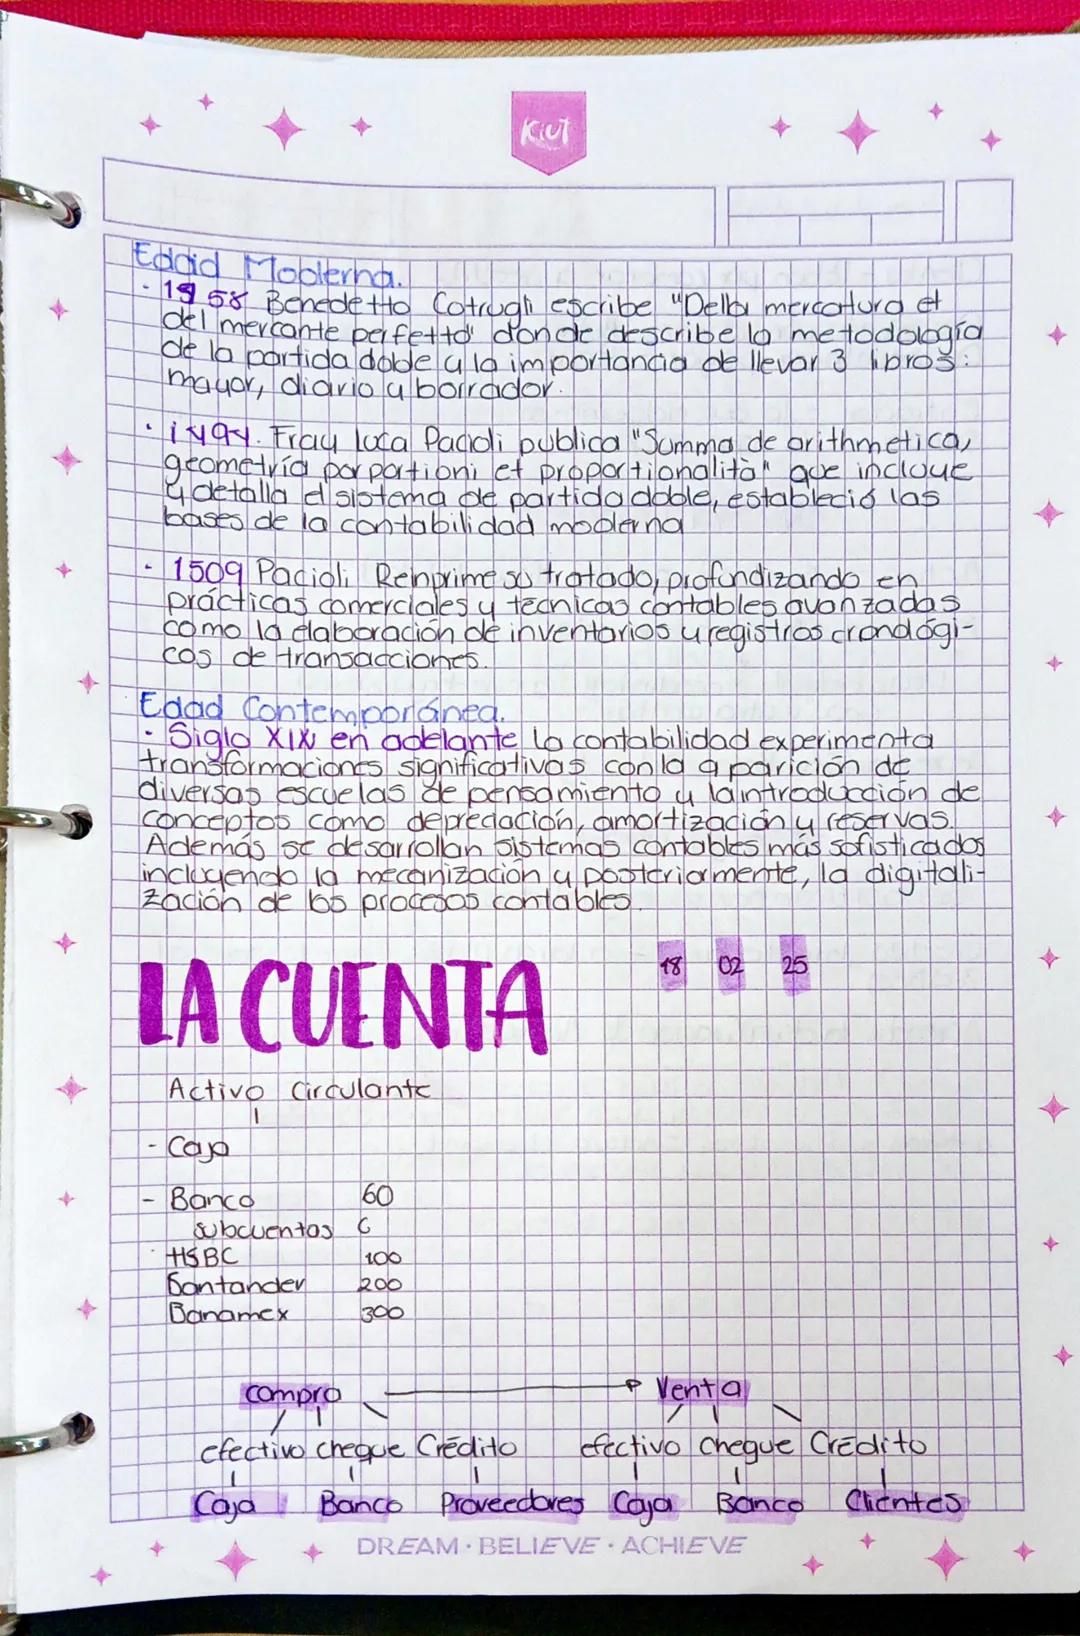 Kiut
Edad Moderna.
· 1958 Benedetto Cotrugli escribe "Della mercatura et
del mercante perfetto" donde describe la metodología
de la partida doble y la importancia de llevar 3 libros:
mayor, diario y borrador.
· 1494. Fray luca Pacioli publica "Summa de arithmetica,
geometría porportioni et proportionalità" que incluye
y detalla el sistema de partida doble, estableció las
bases de la contabilidad moderna
· 1509 Pacioli Reinprime su tratado, profundizando en
prácticas comerciales y técnicas contables avanzadas
como la elaboración de inventarios y registros cronológi-
cos de transacciones.
Edad Contemporánea.
· Siglo XIX en adelante la contabilidad experimenta
transformaciones significativas con la aparición de
diversas escuelas de pensamiento y la introducción de
conceptos como depredación, amortización y reservas.
Además se desarrollan sistemas contables más sofisticados
incluyendo la mecanización y posteriormente, la digitali-
zación de los procesos contables.
LA CUENTA 18 02 25
Activo Circulante
- Caja
- Banco 60
subcuentas C
· HSBC 100
Santander 200
Banamex 300
compra → Venta
efectivo cheque Crédito efectivo cheque Crédito
Caja Banco Proveedores Caja Banco Clientes
DREAM · BELIEVE · ACHIEVE